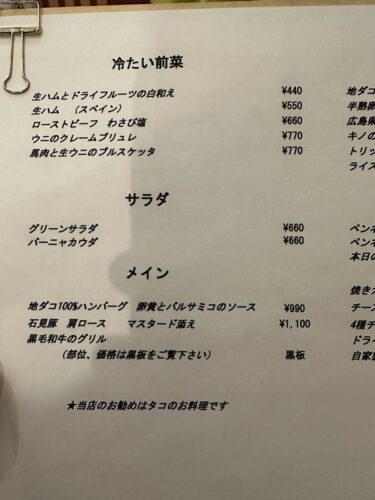 冷たい前菜
生ハムとドライフルーツの白和え ¥440
生ハム (スペイン) ¥550
ローストビーフ わさび塩 ¥660
ウニのクレームブリュレ ¥770
馬肉と生ウニのブルスケッタ ¥770
サラダ
グリーンサラダ ¥660
バーニャカウダ ¥660
メイン
地ダコ100%ハンバーグ 卵黄とバルサミコのソース ¥990
石見豚 肩ロース マスタード添え ¥1,100
黒毛和牛のグリル
(部位、価格は黒板をご覧下さい) 黒板
★当店のお勧めはタコのお料理です
地ダコ
半熟卵
広島県
キノ
トリッ
ライス
ペンネ
ペンネ
本日の
焼きカ
チース
4種チ
ドライ
自家製